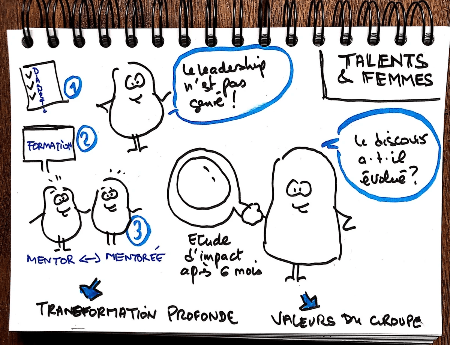 TALENTS
& FEMMES
1
Le leadership
n'est pas
genré !
2
FORMATION
3
MENTOR <-> MENTORÉE
Le discours
a-t-il
évolué?
Etude
d'impact
après 6 mois
TRANSFORMATION PROFONDE
VALEURS DU GROUPE